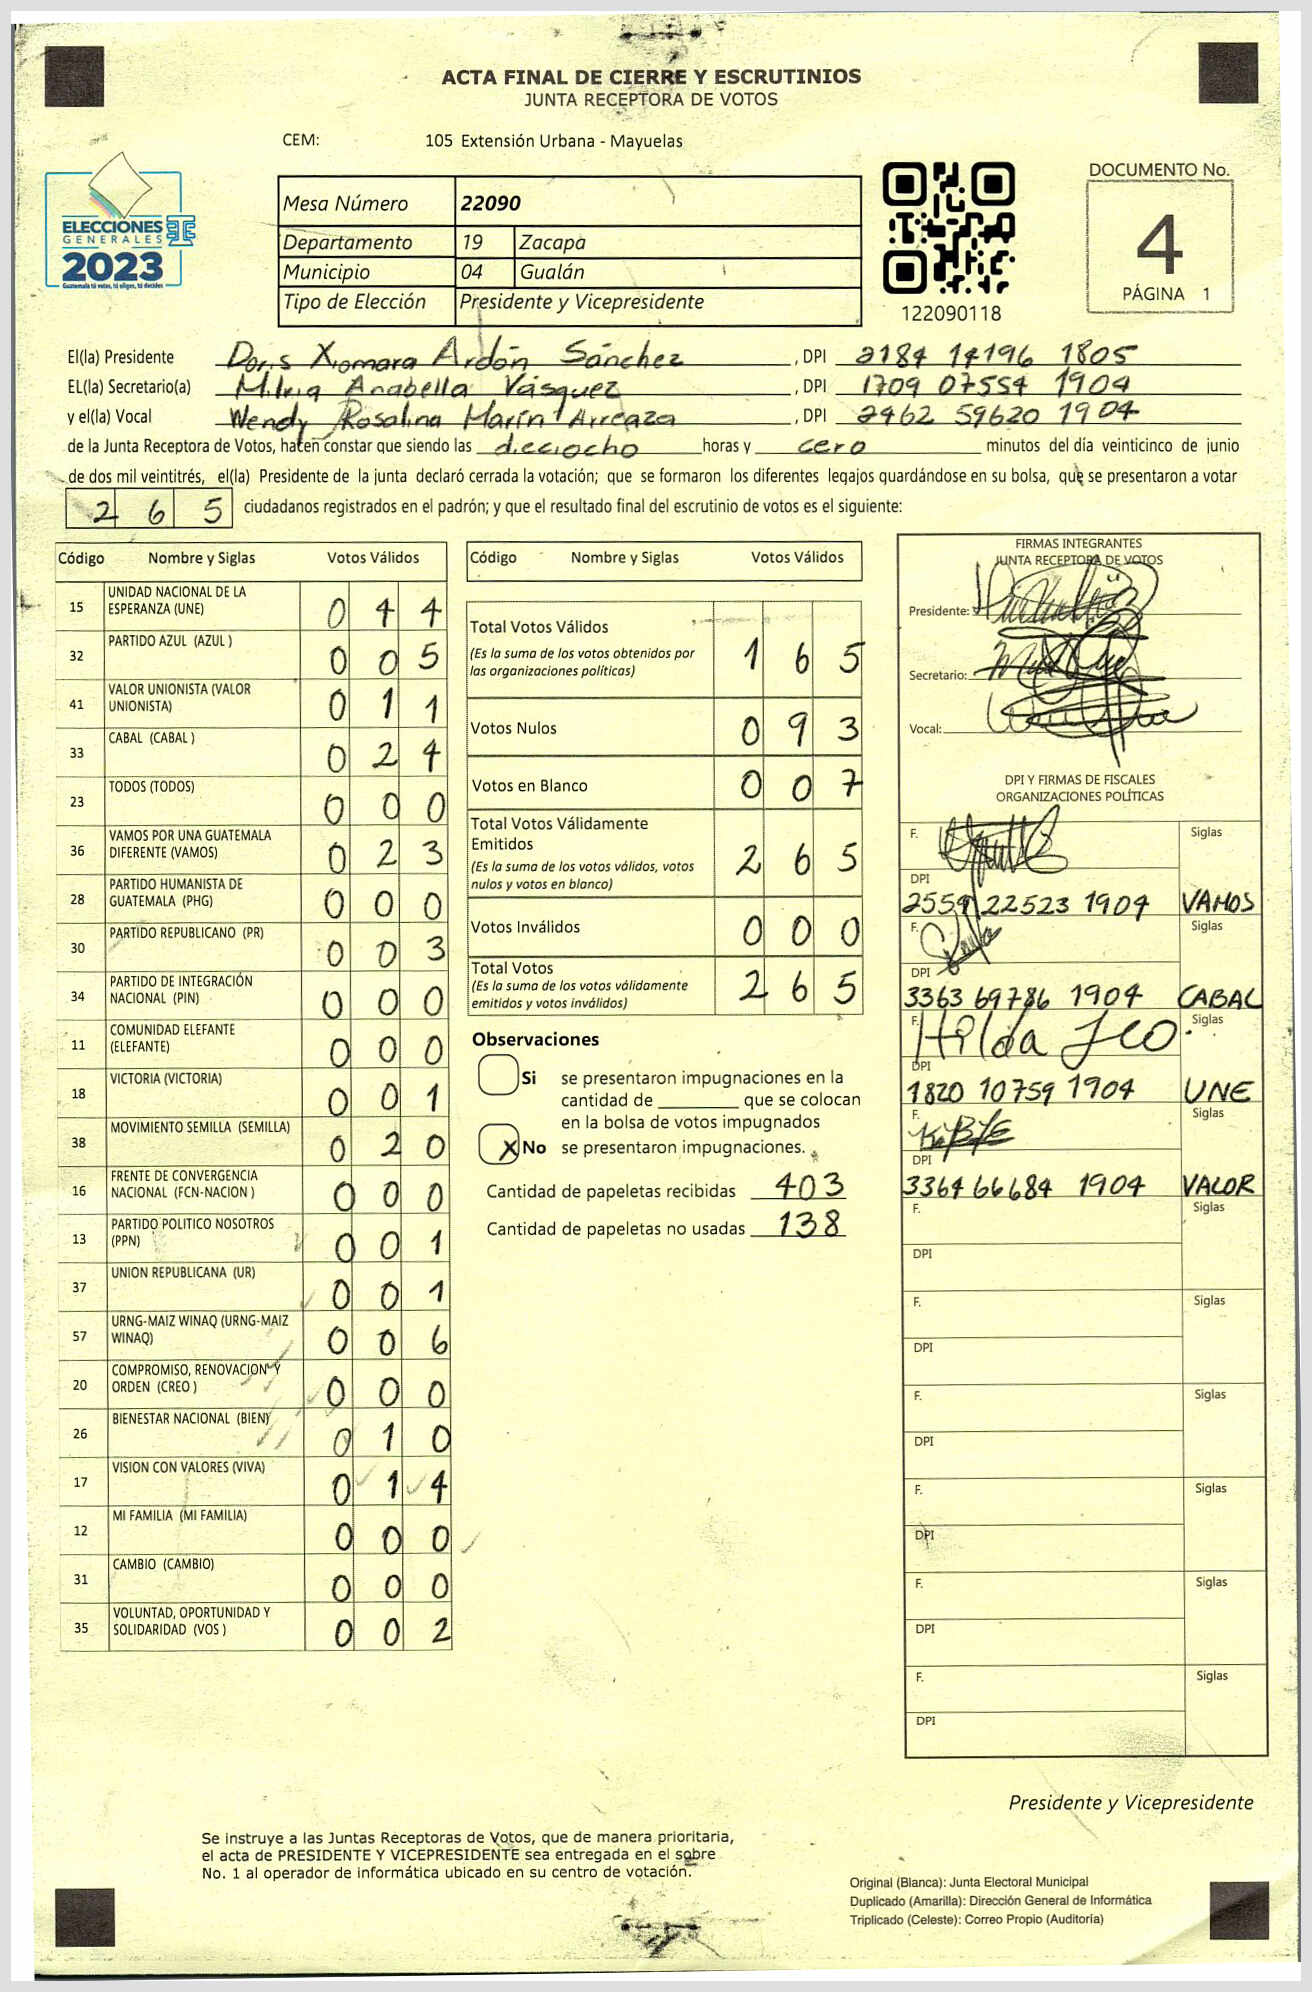 ACTA FINAL DE CIERRE Y ESCRUTINIOS
JUNTA RECEPTORA DE VOTOS
CEM: 105 Extensión Urbana - Mayuelas
ELECCIONES
GENERALES
2023
Guatemala tú votas, tú eliges, tú decides
Mesa Número 22090
Departamento 19 Zacapa
Municipio 04 Gualán
Tipo de Elección Presidente y Vicepresidente
122090118
DOCUMENTO No.
4
PÁGINA 1
El(la) Presidente Doris Xiomara Ardón Sánchez , DPI 2184 14196 1805
EL(la) Secretario(a) Milvia Anabella Vásquez , DPI 1709 07554 1904
y el(la) Vocal Wendy Rosalina Marín Arreaza , DPI 2462 59620 1904
de la Junta Receptora de Votos, hacen constar que siendo las dieciocho horas y cero minutos del día veinticinco de junio
de dos mil veintitrés, el(la) Presidente de la junta declaró cerrada la votación; que se formaron los diferentes legajos quardándose en su bolsa, que se presentaron a votar
265 ciudadanos registrados en el padrón; y que el resultado final del escrutinio de votos es el siguiente:
Código Nombre y Siglas Votos Válidos
15 UNIDAD NACIONAL DE LA
ESPERANZA (UNE) 0 4 4
32 PARTIDO AZUL (AZUL ) 0 0 5
41 VALOR UNIONISTA (VALOR
UNIONISTA) 0 1 1
33 CABAL (CABAL ) 0 2 4
23 TODOS (TODOS) 0 0 0
36 VAMOS POR UNA GUATEMALA
DIFERENTE (VAMOS) 0 2 3
28 PARTIDO HUMANISTA DE
GUATEMALA (PHG) 0 0 0
30 PARTIDO REPUBLICANO (PR) 0 0 3
34 PARTIDO DE INTEGRACIÓN
NACIONAL (PIN) 0 0 0
11 COMUNIDAD ELEFANTE
(ELEFANTE) 0 0 0
18 VICTORIA (VICTORIA) 0 0 1
38 MOVIMIENTO SEMILLA (SEMILLA) 0 2 0
16 FRENTE DE CONVERGENCIA
NACIONAL (FCN-NACION ) 0 0 0
13 PARTIDO POLITICO NOSOTROS
(PPN) 0 0 1
37 UNION REPUBLICANA (UR) 0 0 1
57 URNG-MAIZ WINAQ (URNG-MAIZ
WINAQ) 0 0 6
20 COMPROMISO, RENOVACION Y
ORDEN (CREO ) 0 0 0
26 BIENESTAR NACIONAL (BIEN) 0 1 0
17 VISION CON VALORES (VIVA) 0 1 4
12 MI FAMILIA (MI FAMILIA) 0 0 0
31 CAMBIO (CAMBIO) 0 0 0
35 VOLUNTAD, OPORTUNIDAD Y
SOLIDARIDAD (VOS ) 0 0 2
Código Nombre y Siglas Votos Válidos
Total Votos Válidos 1 6 5
(Es la suma de los votos obtenidos por
las organizaciones políticas)
Votos Nulos 0 9 3
Votos en Blanco 0 0 7
Total Votos Válidamente
Emitidos 2 6 5
(Es la suma de los votos válidos, votos
nulos y votos en blanco)
Votos Inválidos 0 0 0
Total Votos 2 6 5
(Es la suma de los votos válidamente
emitidos y votos inválidos)
Observaciones
Si se presentaron impugnaciones en la
cantidad de ________ que se colocan
en la bolsa de votos impugnados
X No se presentaron impugnaciones.
Cantidad de papeletas recibidas 403
Cantidad de papeletas no usadas 138
FIRMAS INTEGRANTES
JUNTA RECEPTORA DE VOTOS
Presidente:
Secretario:
Vocal:
DPI Y FIRMAS DE FISCALES
ORGANIZACIONES POLÍTICAS
F. Siglas
DPI
2559 22523 1904 VAMOS
F. Siglas
DPI
3363 69786 1904 CABAL
F. Hilda Leo Siglas
DPI
1820 10759 1904 UNE
F. Siglas
DPI
3364 66684 1904 VALOR
F. Siglas
DPI
F. Siglas
DPI
F. Siglas
DPI
F. Siglas
DPI
F. Siglas
DPI
F. Siglas
DPI
Presidente y Vicepresidente
Se instruye a las Juntas Receptoras de Votos, que de manera prioritaria,
el acta de PRESIDENTE Y VICEPRESIDENTE sea entregada en el sobre
No. 1 al operador de informática ubicado en su centro de votación.
Original (Blanca): Junta Electoral Municipal
Duplicado (Amarilla): Dirección General de Informática
Triplicado (Celeste): Correo Propio (Auditoría)